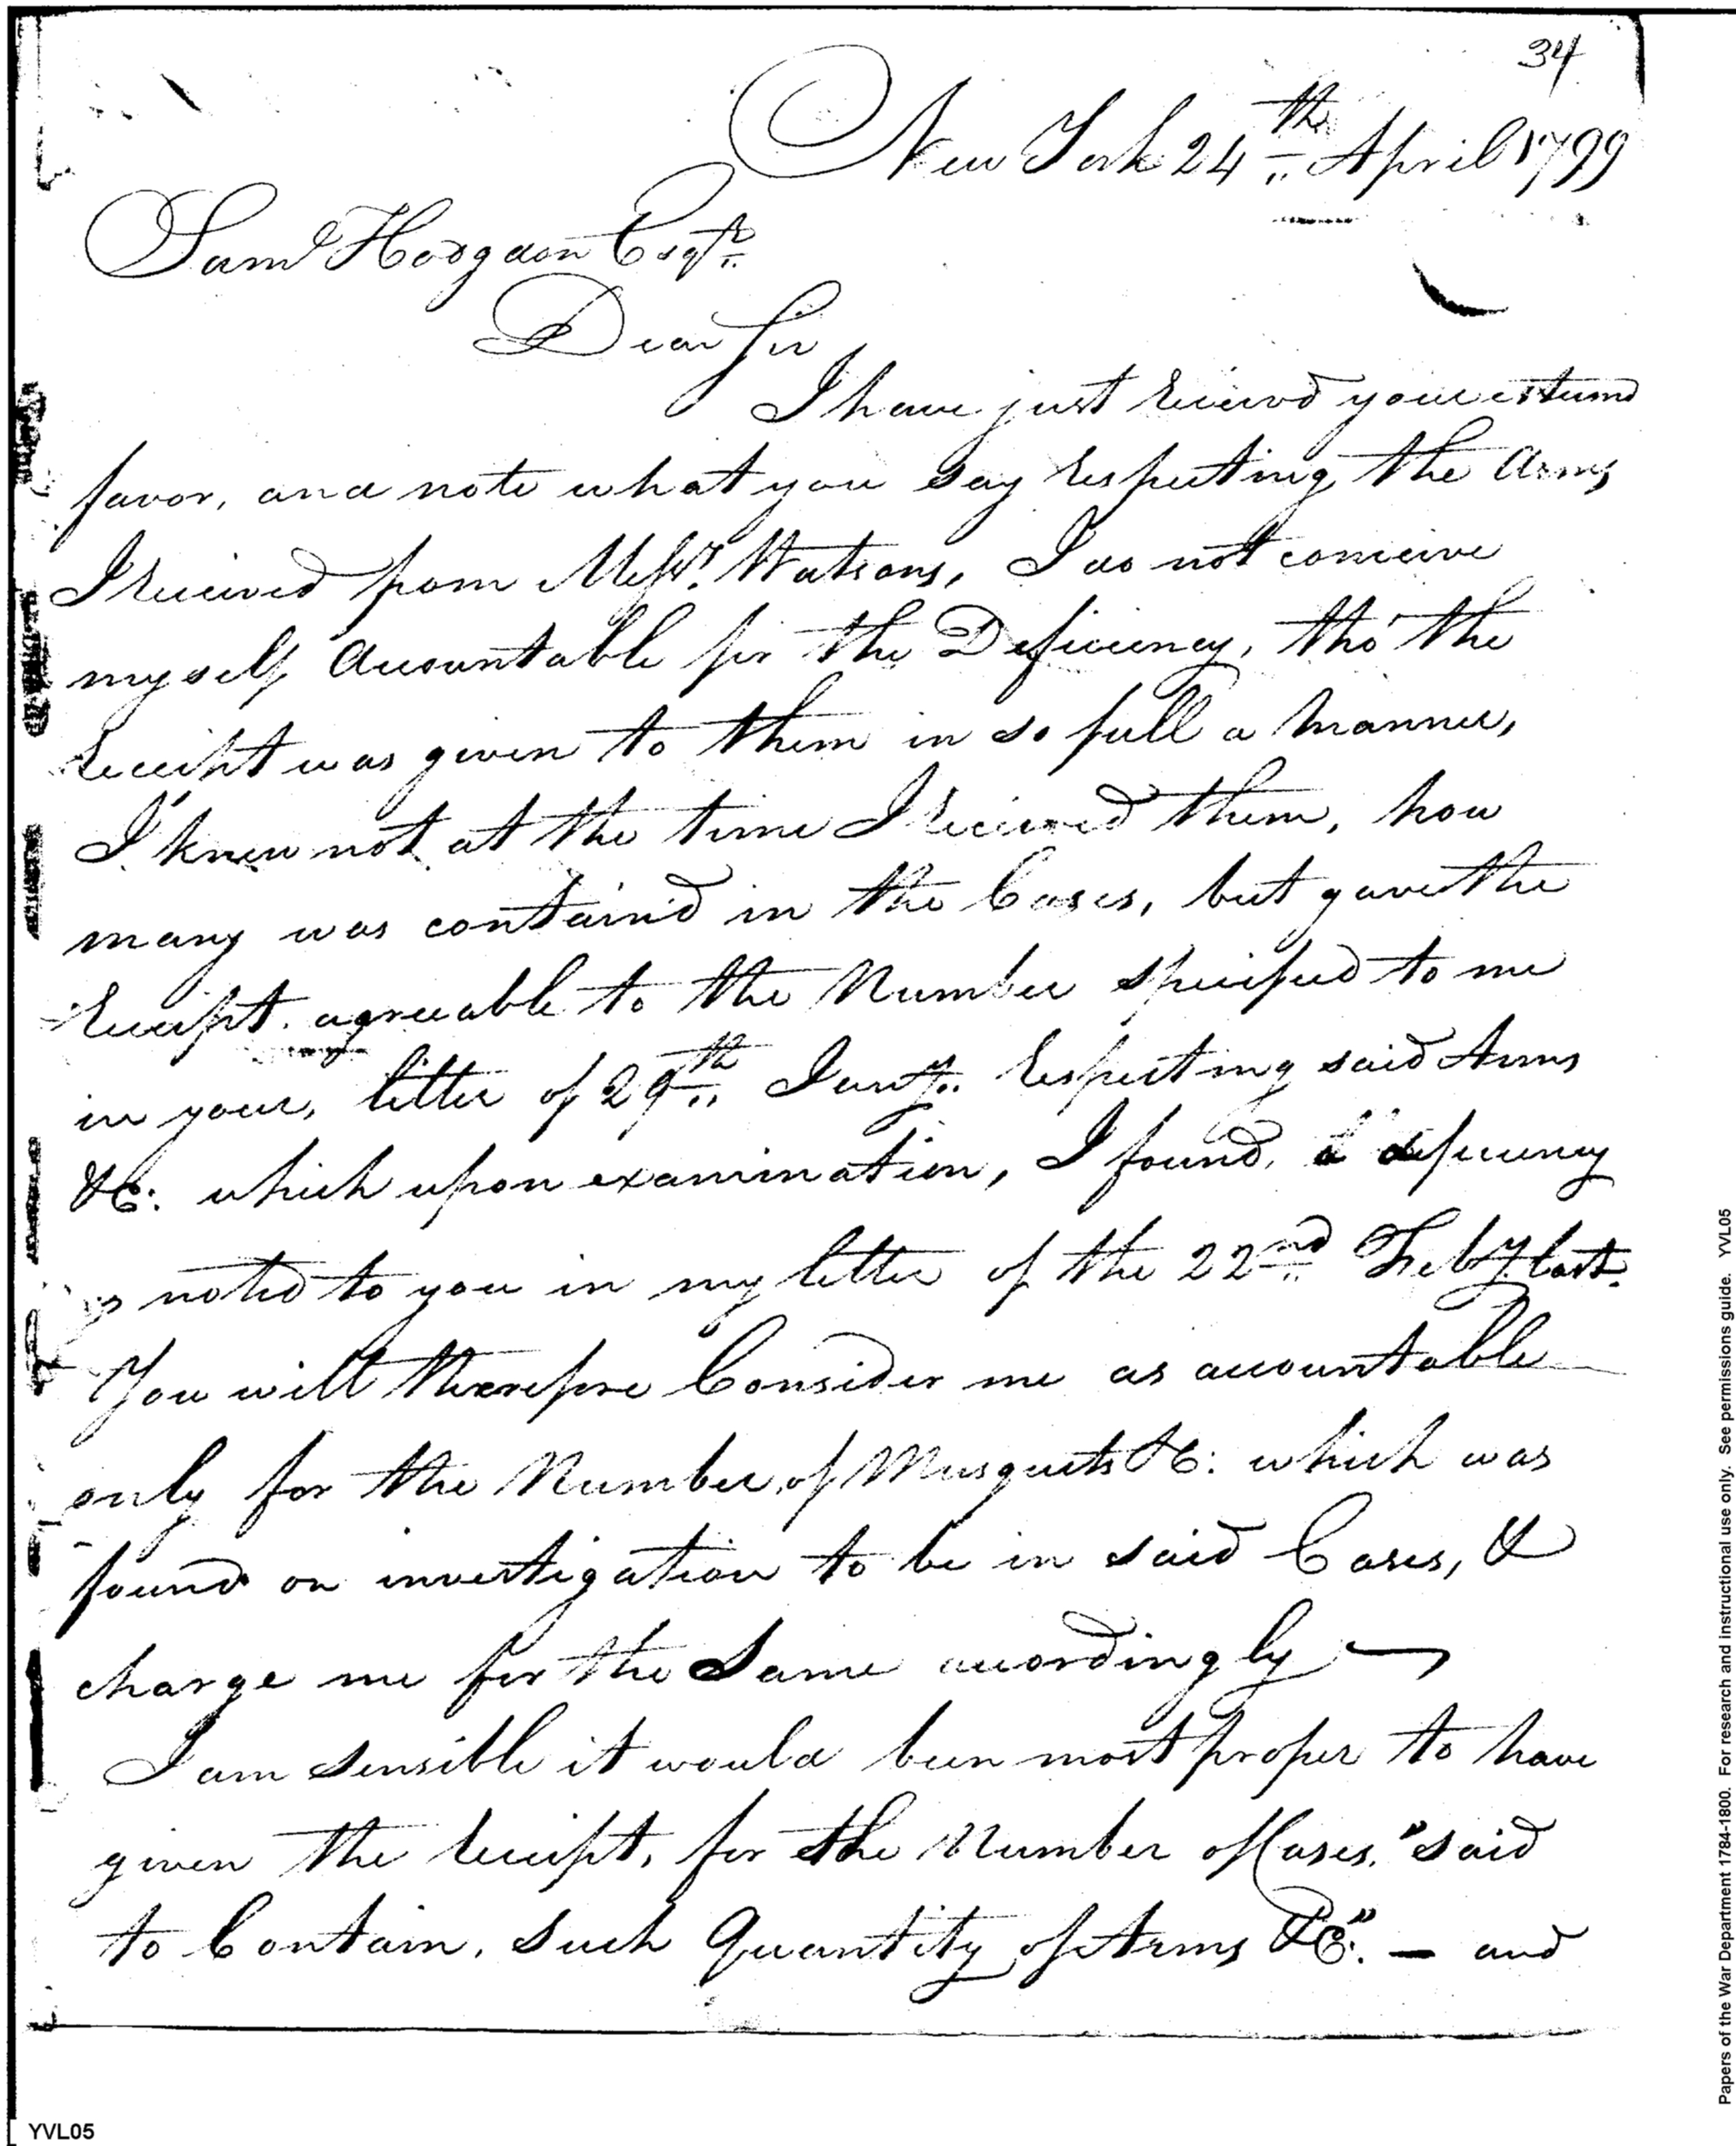 34
New York 24th April 1799
Saml Hodgdon Esqr
Dear Sir
I have just receivd your esteemd
favor, and note what you say respecting the Arms
I received from Messrs. Watsons, I do not conceive
myself accountable for the Deficiency, tho' the
receipt was given to them in so full a manner,
I knew not at the time I received them, how
many was contain'd in the Cases, but gave the
receipt agreeable to the Number specified to me
in your, letter of 29th Jany. respecting said Arms
&C: which upon examination, I found, a deficiency
as noted to you in my letter of the 22nd Feby. last.
You will therefore Consider me as accountable
only for the Number, of Musquets &C: which was
found on investigation to be in said Cases, &
charge me for the Same accordingly —
I am sensible it would been most proper to have
given the receipt, for the Number of Cases, "said
to Contain, Such Quantity of Arms &C". — and
YVL05
Papers of the War Department 1784-1800. For research and instructional use only. See permissions guide. YVL05